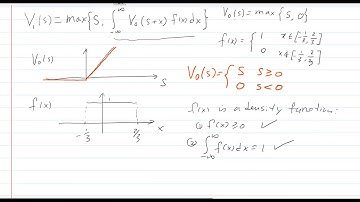 V₁(s) = max{S, ∫_{-∞}^{∞} V₀(s+x) f(x)dx}
V₀(s) = max{S, 0}
f(x) = { 1 x∈[-1/3, 2/3]
0 x∉[-1/3, 2/3]
V₀(s)
S
V₀(s) = { S S≥0
0 S<0
f(x)
1
-1/3
2/3
x
f(x) is a density function:
① f(x) ≥ 0 ✓
② ∫_{-∞}^{∞} f(x)dx = 1 ✓